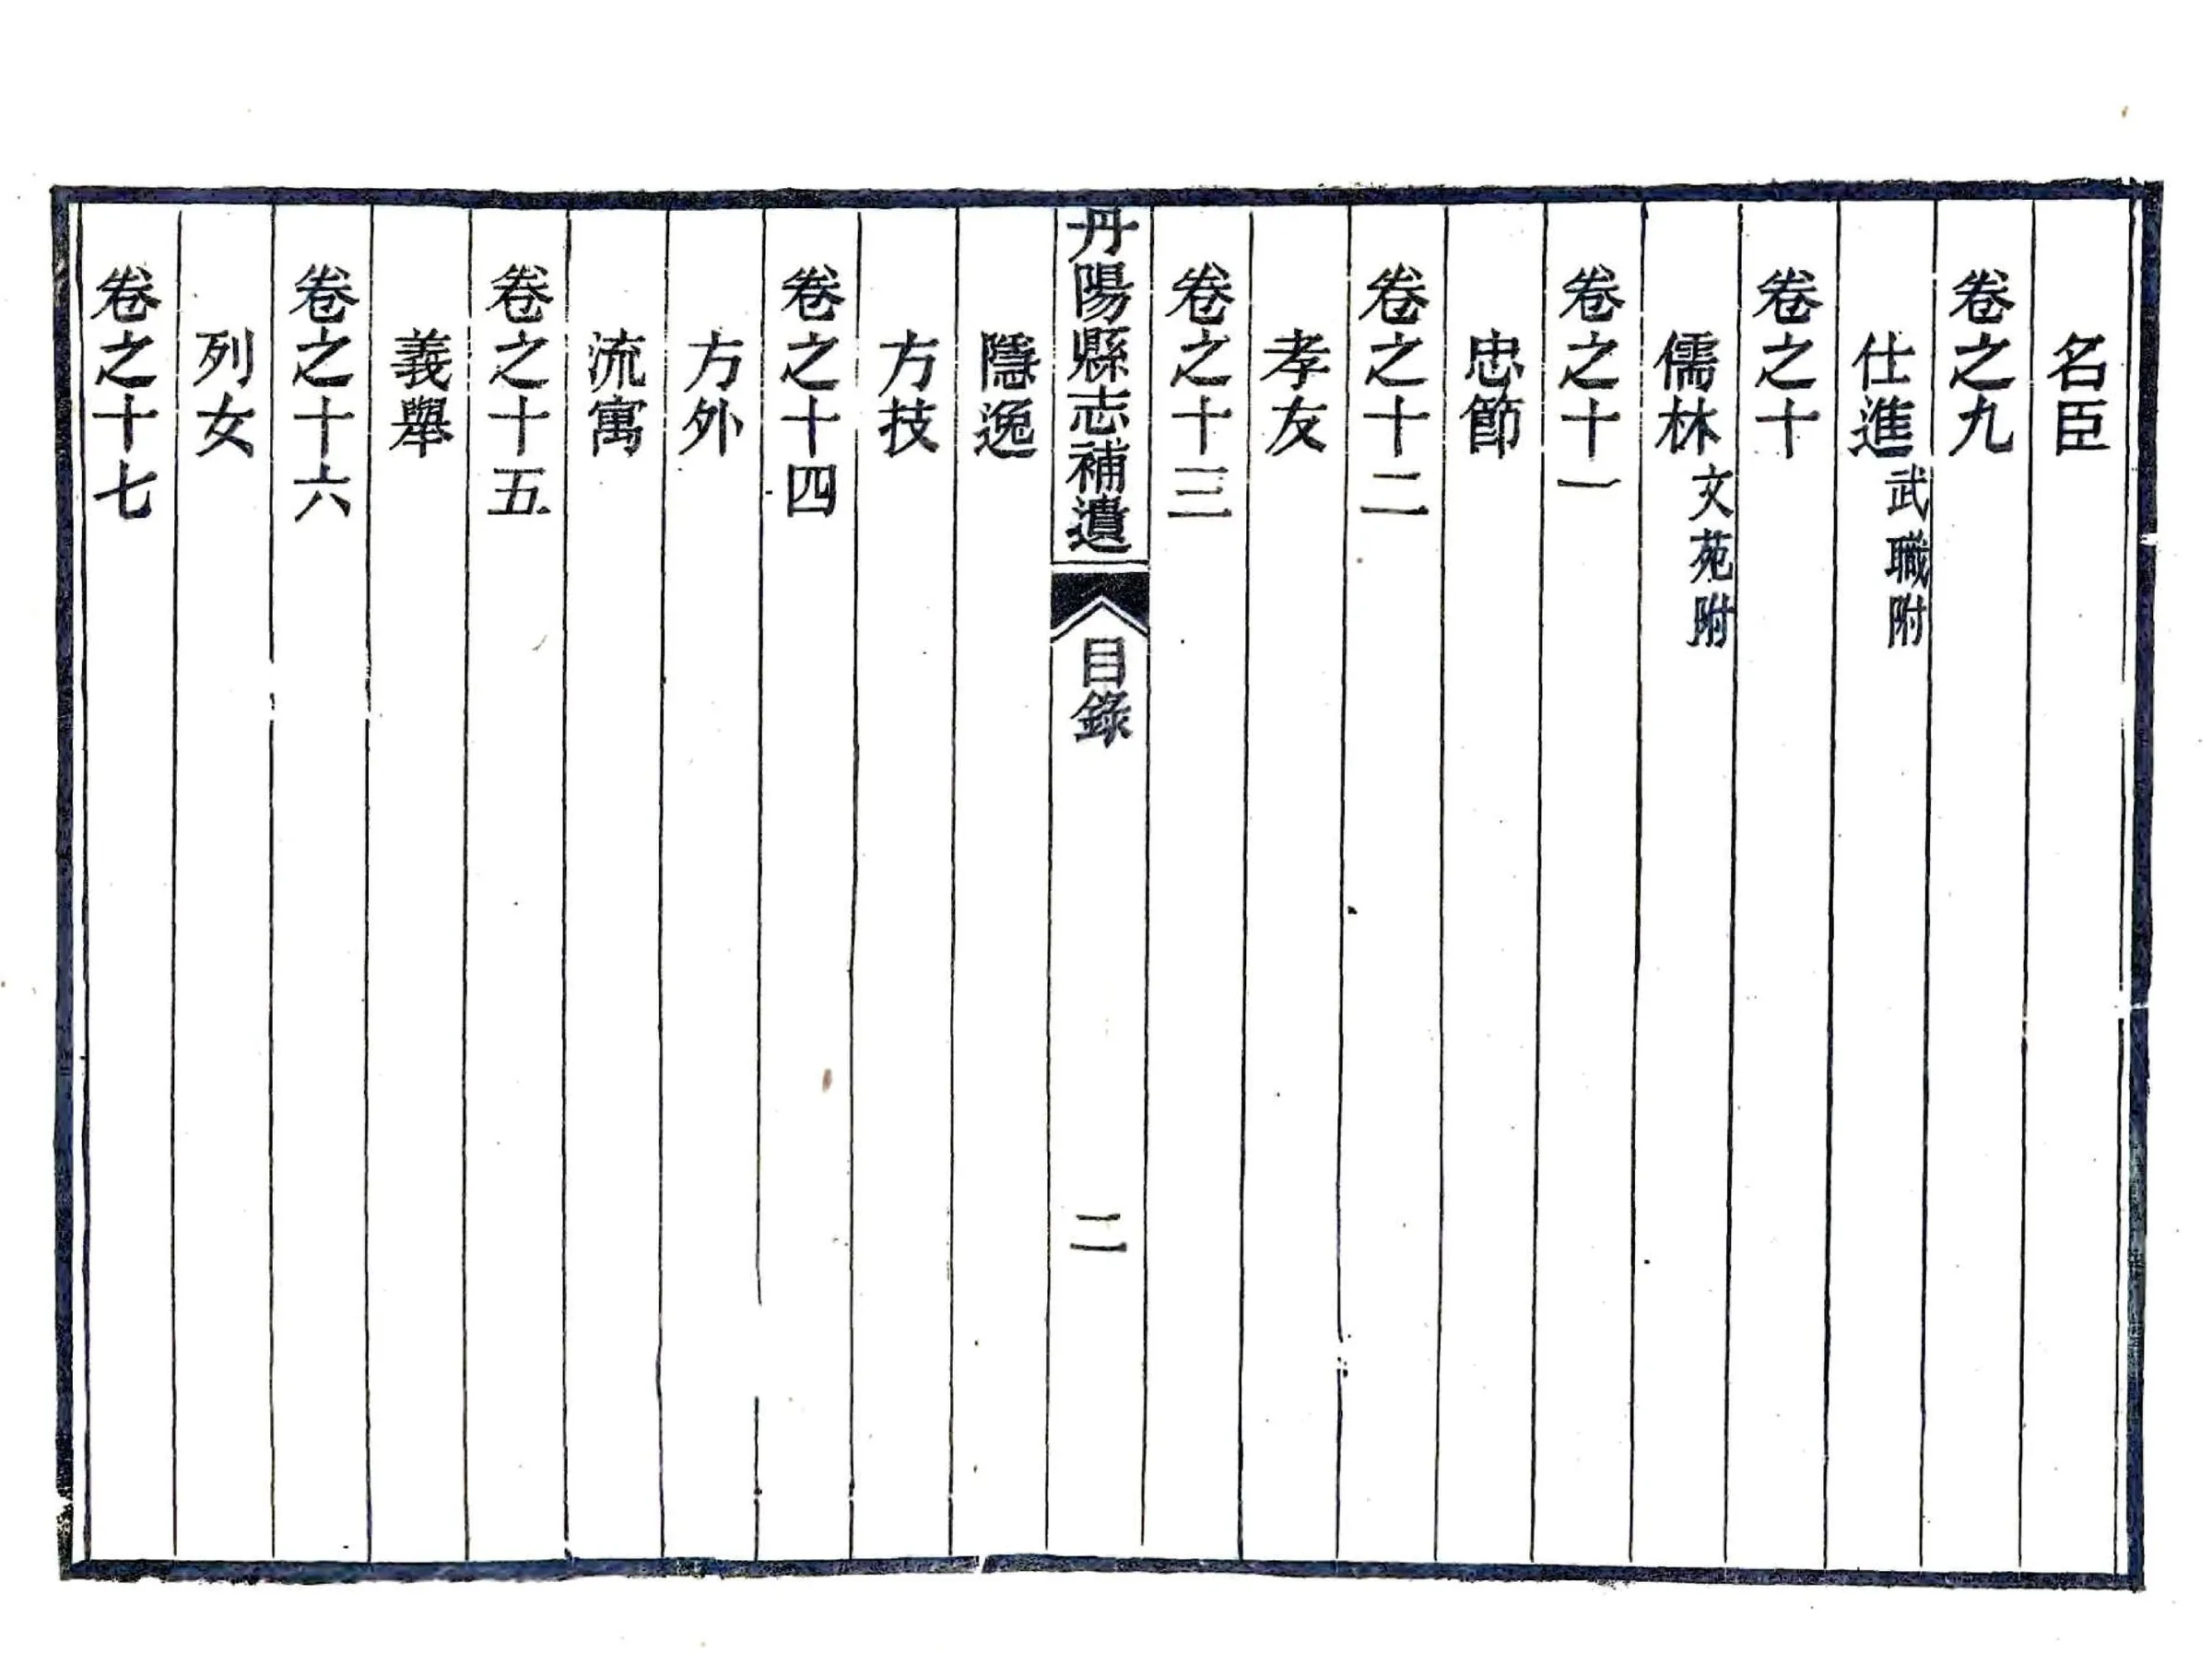 名臣
卷之九
仕進武職附
卷之十
儒林文苑附
卷之十一
忠節
卷之十二
孝友
卷之十三
丹陽縣志補遺 目錄 二
隱逸
方技
卷之十四
方外
流寓
卷之十五
義舉
卷之十六
列女
卷之十七